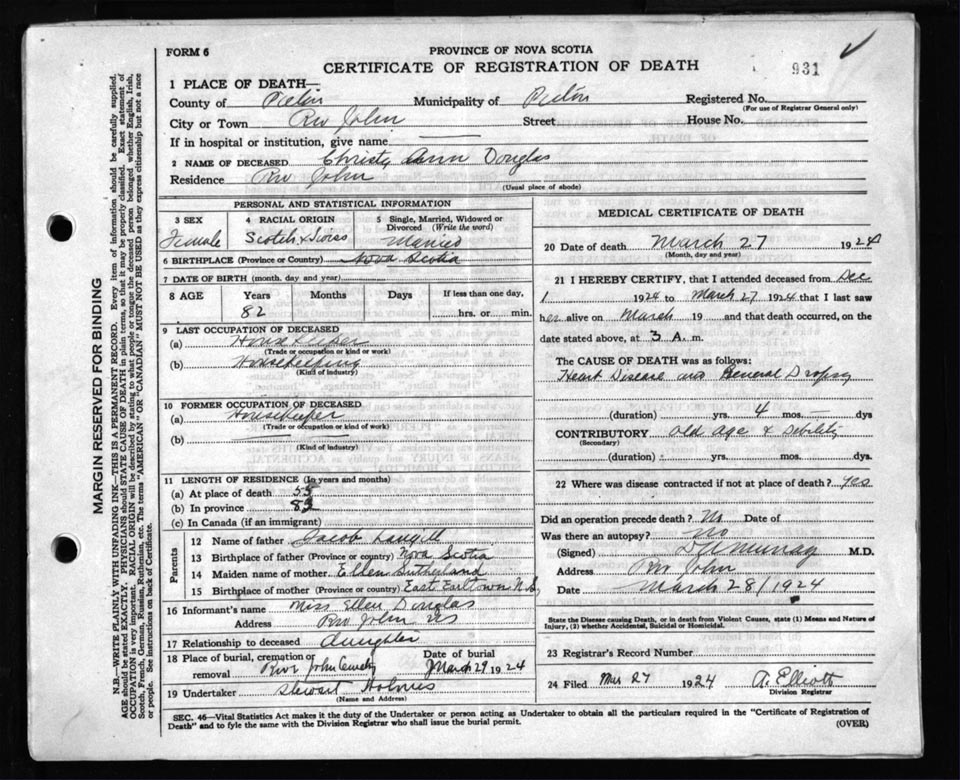 FORM 6
PROVINCE OF NOVA SCOTIA
CERTIFICATE OF REGISTRATION OF DEATH
931
1 PLACE OF DEATH—
County of Pictou Municipality of Pictou Registered No.
(For use of Registrar General only)
City or Town Riv John Street House No.
If in hospital or institution, give name
2 NAME OF DECEASED Christy Ann Douglas
Residence Riv John
(Usual place of abode)
PERSONAL AND STATISTICAL INFORMATION
3 SEX 4 RACIAL ORIGIN 5 Single, Married, Widowed or Divorced (Write the word)
Female Scotch & Swiss Married
6 BIRTHPLACE (Province or Country) Nova Scotia
7 DATE OF BIRTH (month, day and year)
8 AGE Years Months Days If less than one day,
82 hrs. or min.
9 LAST OCCUPATION OF DECEASED
(a) House Keeper
(Trade or occupation or kind or work)
(b) Housekeeping
(Kind of industry)
10 FORMER OCCUPATION OF DECEASED
(a) Housekeeper
(Trade or occupation or kind of work)
(b)
(Kind of industry)
11 LENGTH OF RESIDENCE (In years and months)
(a) At place of death
(b) In province
(c) In Canada (if an immigrant)
Parents
12 Name of father Jacob Langill
13 Birthplace of father (Province or country) Nova Scotia
14 Maiden name of mother Ellen Sutherland
15 Birthplace of mother (Province or country) East Earltown N.S.
16 Informant's name Miss Ellen Douglas
Address Riv John NS
17 Relationship to deceased daughter
18 Place of burial, cremation or removal River John Cemetry Date of burial March 29 1924
19 Undertaker Stewart Holmes
(Name and Address)
MEDICAL CERTIFICATE OF DEATH
20 Date of death March 27 1924
(Month, day and year)
21 I HEREBY CERTIFY, that I attended deceased from Dec
1 1924 to March 27 1924 that I last saw
her alive on March 19 and that death occurred, on
date stated above, at 3 A. m.
The CAUSE OF DEATH was as follows:
Heart Disease and General Dropsy
(duration) yrs. 4 mos. — dys
CONTRIBUTORY Old Age & Debility
(Secondary)
(duration) yrs. mos. dys.
22 Where was disease contracted if not at place of death? Yes
Did an operation precede death? No Date of
Was there an autopsy? No
(Signed) Murray M.D.
Address Riv John
Date March 28/1924
State the Disease causing Death, or in death from Violent Causes, state (1) Means and Nature of Injury, (2) whether Accidental, Suicidal or Homicidal.
23 Registrar's Record Number
24 Filed Mar 27 1924 A. Elliott
Division Registrar
SEC. 46—Vital Statistics Act makes it the duty of the Undertaker or person acting as Undertaker to obtain all the particulars required in the "Certificate of Registration of
Death" and to fyle the same with the Division Registrar who shall issue the burial permit. (OVER)
MARGIN RESERVED FOR BINDING
N.B.—WRITE PLAINLY WITH UNFADING INK—THIS IS A PERMANENT RECORD. Every item of information should be carefully supplied.
AGE should be stated EXACTLY. PHYSICIANS should STATE CAUSE OF DEATH in plain terms, so that it may be properly classified. Exact statement of
OCCUPATION is very important. RACIAL ORIGIN will be described by stating to what people or tongue the deceased person belonged, whether English, Irish,
Scotch, French, German, Russian, Ruthenian, etc. The terms "AMERICAN" or "CANADIAN" MUST NOT BE USED as they express citizenship but not a race
or people. See instructions on back of Certificate.